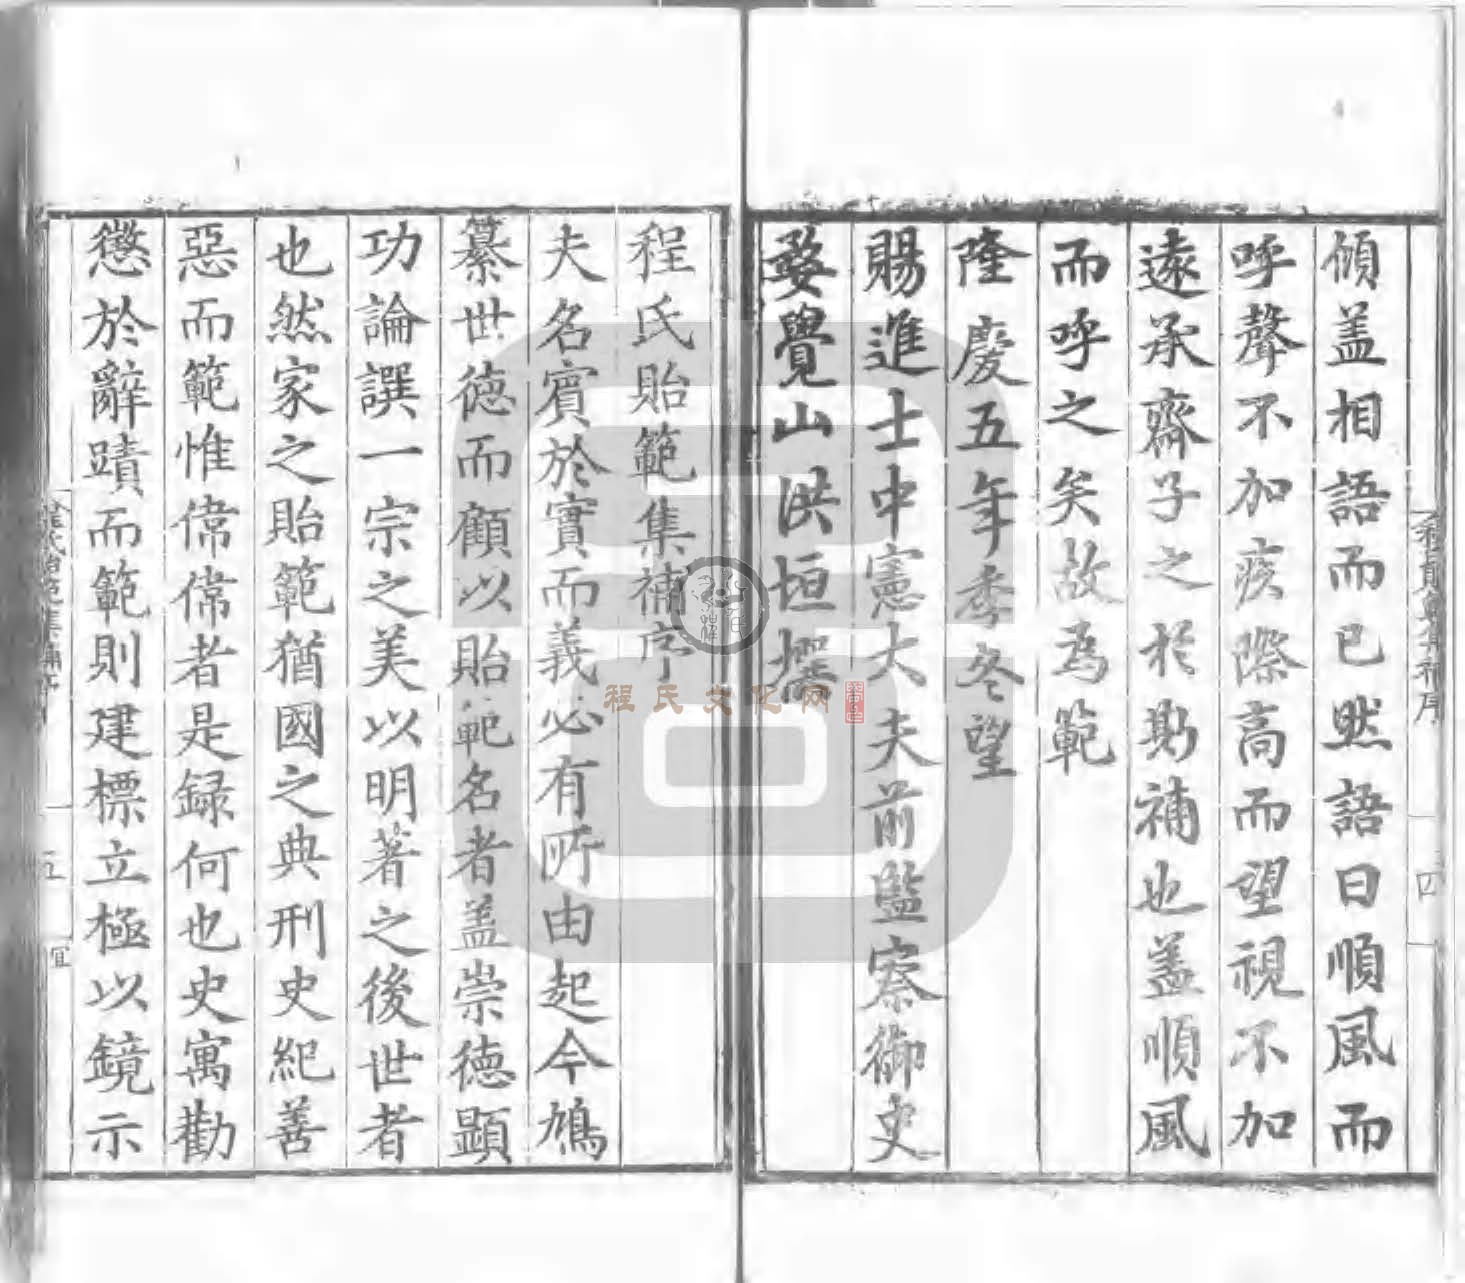 傾盖相語而已然語曰順風而
呼聲不加疾際高而望視不加
遠承齋子之於斯補也盖順風
而呼之矣故爲範
隆慶五年季冬望
賜進士中憲大夫前監察御史
婺覺山洪垣撰
四
程氏貽範集補序
夫名賓於實而義必有所由起今鳩
纂世德而顧以貽範名者盖崇德顯
功論譔一宗之美以明著之後世者
也然家之貽範猶國之典刑史紀善
惡而範惟偉偉者是録何也史寓勸
懲於辭蹟而範則建標立極以鏡示
程氏貽範集補序
五
宜
程氏文化网